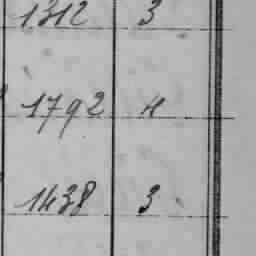 1312 3
1792 4
1438 3